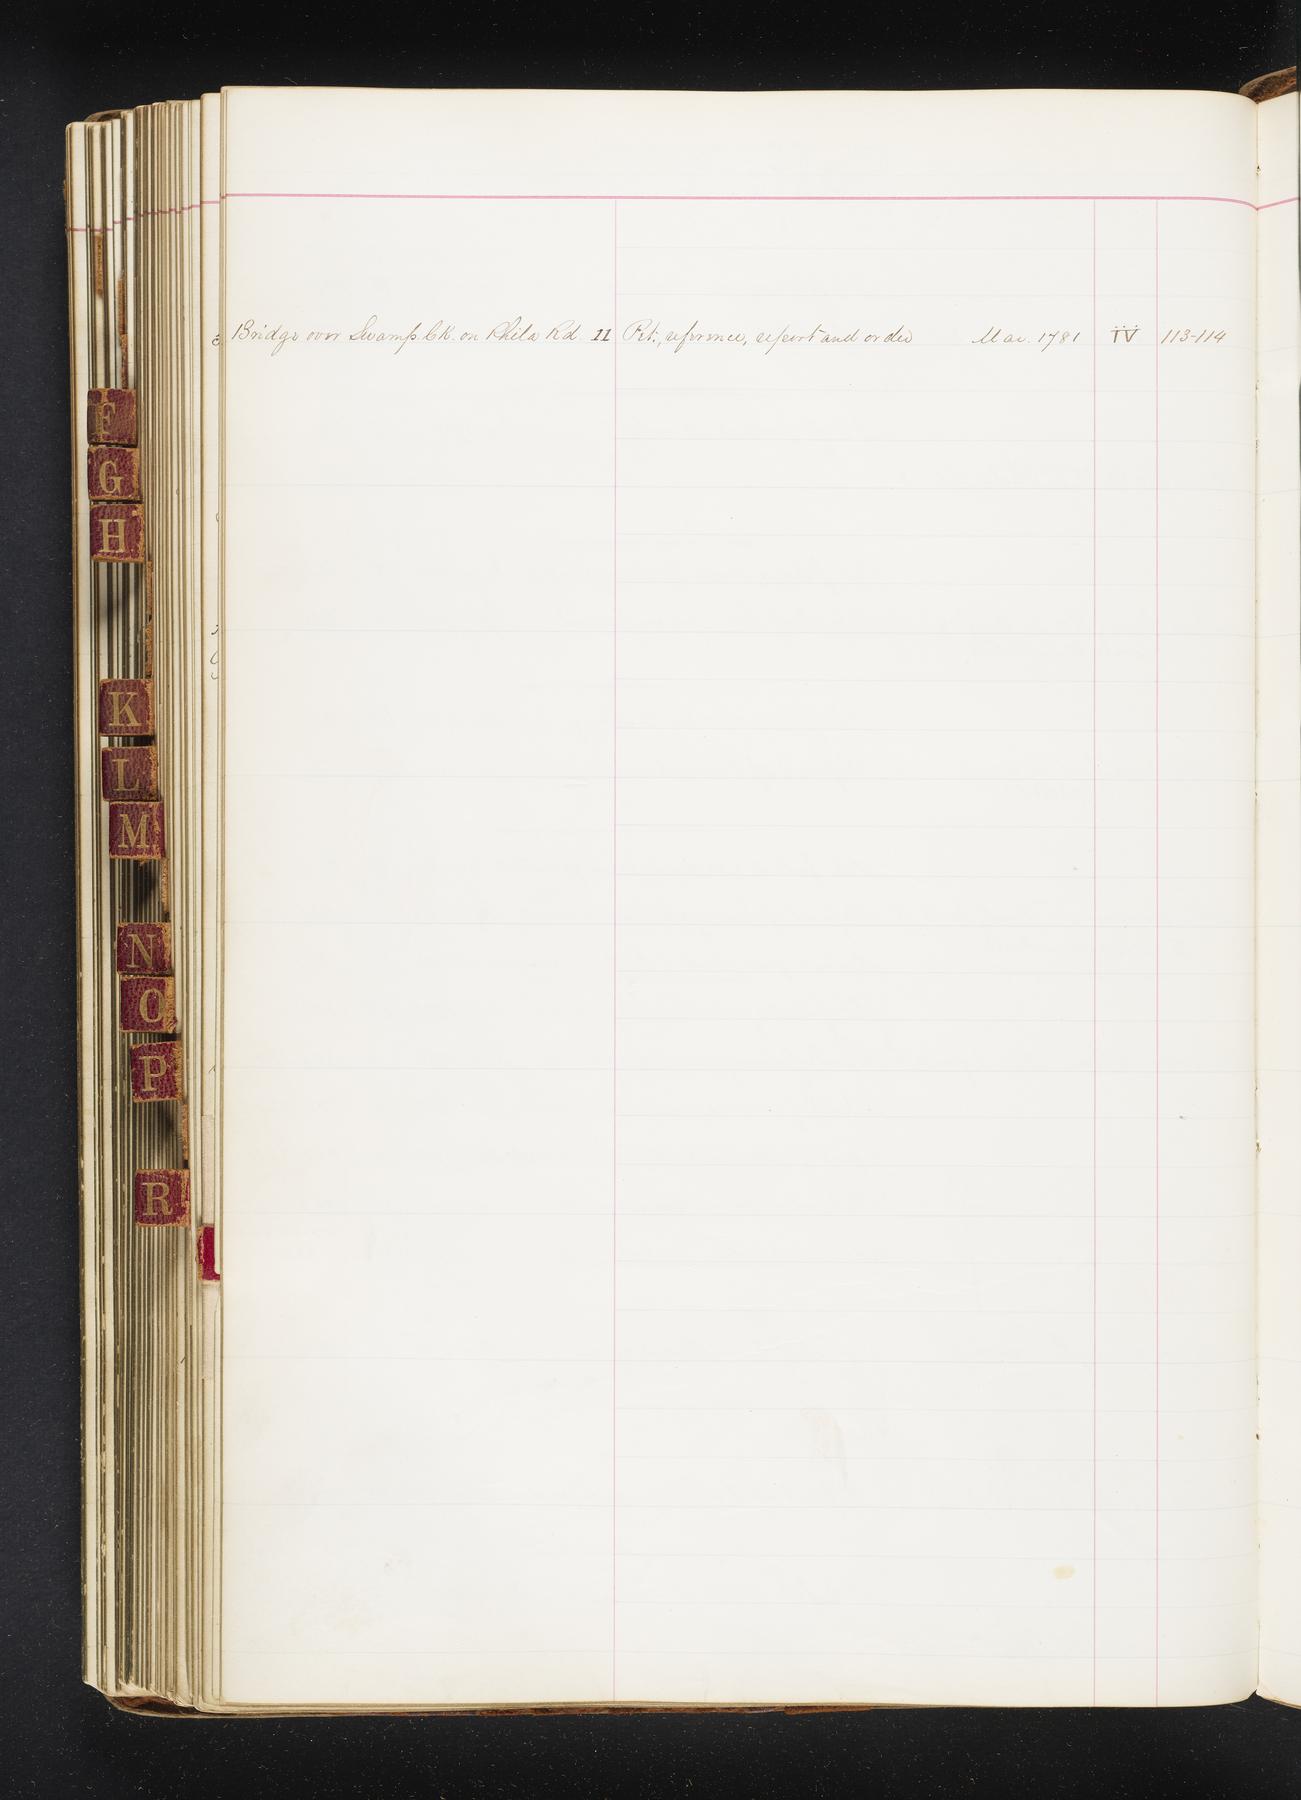 Bridge over Swamp Ck. on Phila Rd. 11 Pet., reference, report and order Mar. 1781 IV 113-114
F
G
H
K
L
M
N
O
P
R